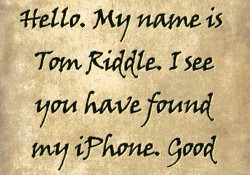 Hello. My name is
Tom Riddle. I see
you have found
my iPhone. Good